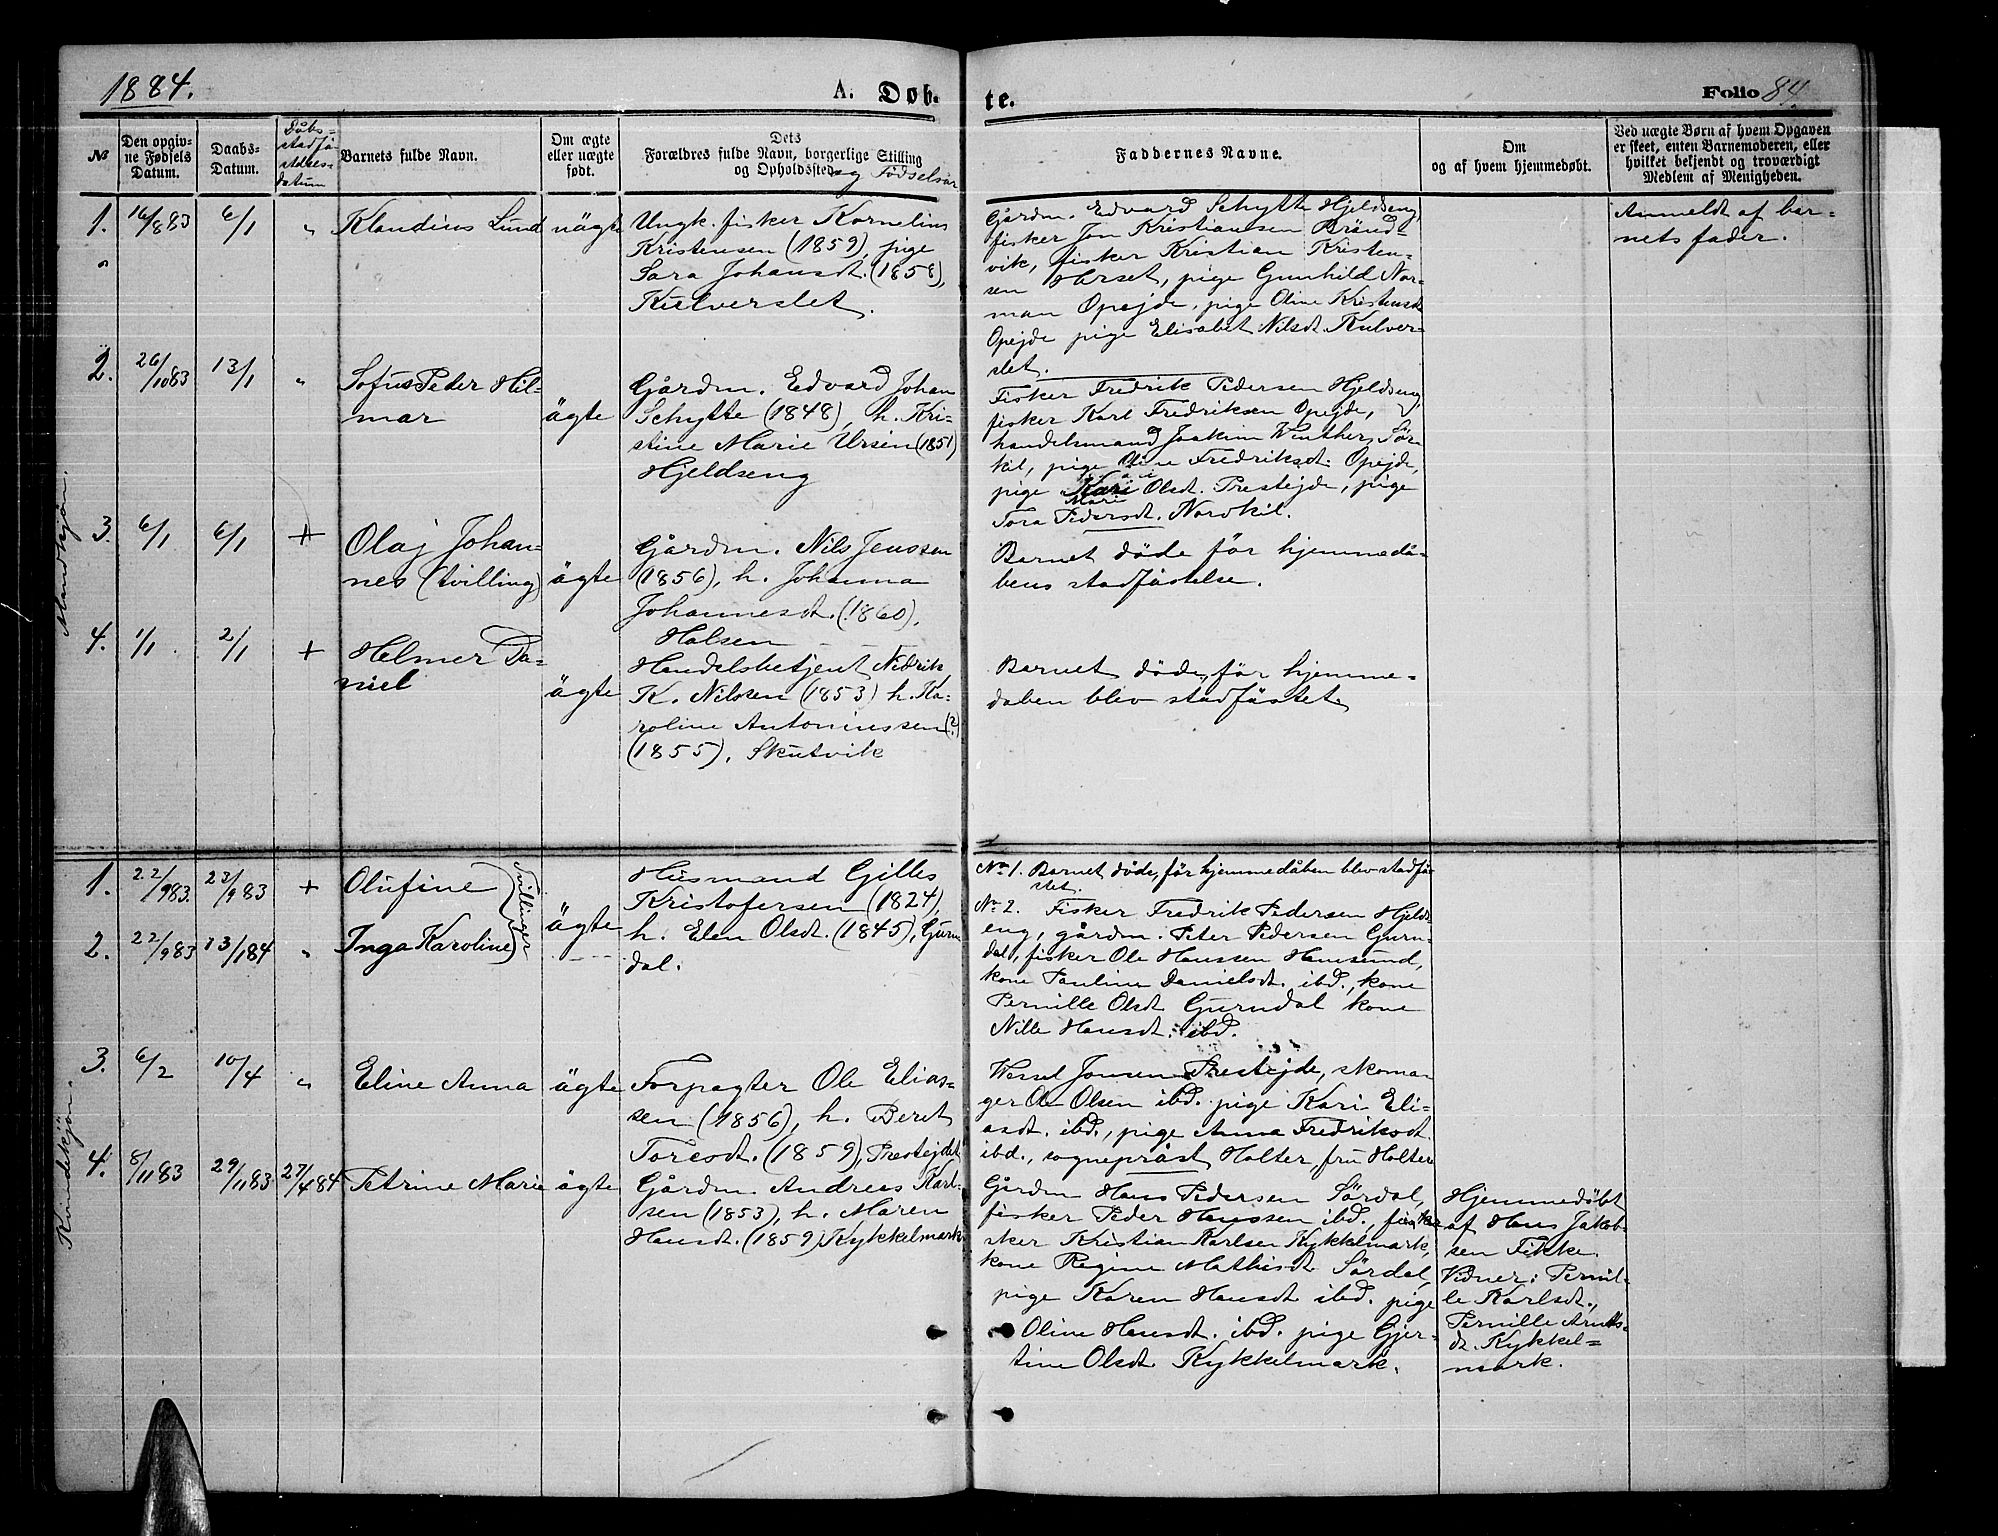 1884.
A. Døb-
te.
Folio 84.
No
Den opgiv-
ne Fødsels
Datum.
Daabs-
Datum.
Dåbs-
stadfä-
stelses-
datum
Barnets fulde Navn.
Om ægte
eller uægte
født.
Dets
Forældres fulde Navn, borgerlige Stilling
og Opholdssted
og Födselsår
Faddernes Navne.
Om
og af hvem hjemmedøbt.
Ved uægte Børn af hvem Opgaven
er skeet, enten Barnemoderen, eller
hvilket bekjendt og troværdigt
Medlem af Menigheden.
Mandkjön.
1.
16/883
6/1
"
Klaudius Lund
uägte
Ungk. fisker Kornelius
Kristensen (1859), pige
Sara Johansdt. (1858),
Kulverslet.
Gårdm. Edvard Schytte Hjeldseng,
fisker Jon Kristiansen Brändt
vik, fisker Kristian Kristen-
sen Horset, pige Gunhild Nor-
man Opejde, pige Oline Kristensdt
Opejde pige Elisabet Nilsdt. Kulver-
slet.
Anmeldt af bar-
nets fader.
2.
26/1083
13/1
"
Sofus Peder Hil-
mar
ägte
Gårdm. Edvard Johan
Schytte (1848), h. Kri-
stine Marie Ursin (1851)
Hjeldseng
Fisker Fredrik Pedersen Hjeldseng,
fisker Karl Fredriksen Opejde,
handelsmand Joakim Winther, Sör-
kil, pige Oline Fredriksdt. Opejde,
pige Kari Olsdt. Prestejde, pige
Marie
Tora Pedersdt. Nordkil.
3.
6/1
6/1
+
Olaj Johan-
nes (tvilling)
ägte
Gårdm. Nils Jenssen
(1856), h. Johanna
Johannesdt. (1860),
Holsen
Barnet döde för hjemmedå-
bens stadfästelse.
4.
1/1
2/1
+
Helmer Da-
niel
ägte
Handelsbetjent Nidrik
K. Nilsen (1853) h. Ka-
roline Antoniussen (?)
(1855), Skutvik
Barnet döde, för hjemme-
dåben blev stadfästet
Kvindekjön.
1.
22/983.
23/983
+
Olufine
Tvillinger
ägte
Husmand Gilles
Kristofersen (1824),
h. Elen Olsdt. (1845), Gurn-
dal.
No 1. Barnet döde, för hjemmedåben blev stadfä-
stet.
2.
22/983
13/184
"
Inga Karoline
No 2. Fisker Fredrik Pedersen Hjelds-
eng, gårdm. Peter Pedersen Gurn-
dal, fisker Ole Hanssen Hamsund,
kone Pauline Danielsdt. ibd., kone
Pernille Olsdt Gurndal kone
Nille Hansdt. ibd.
3.
6/2
10/4
"
Eline Anna
ägte
Forpagter Ole Elias-
sen (1856), h. Beret
Toresdt. (1859), Prestejdet
Wessel Jonsen Prestejde, skoma-
ger Ole Olsen ibd. pige Kari Eli-
asdt. ibd., pige Anna Fredriksdt.
ibd., sognepräst Holter, fru Holter
4.
8/1183
29/1183
27/484
Petrine Marie
ägte
Gårdm. Andreas Karl-
sen (1853), h. Maren
Hansdt. (1859) Kykkelmark
Gårdm Hans Pedersen Sördal,
fisker Peder Hanssen ibd., fi-
sker Kristian Karlsen Kykkelmark,
kone Regine Mathisdt Sördal,
pige Karen Hansdt ibd. pige
Oline Hansdt. ibd. pige Gjer-
tine Olsdt. Kykkelmark.
Hjemmedöbt
af Hans Jakob-
sen Fikke.
Vidner: Pernil-
le Karlsdt.,
Pernille Arnts-
dt. Kykkel-
mark.